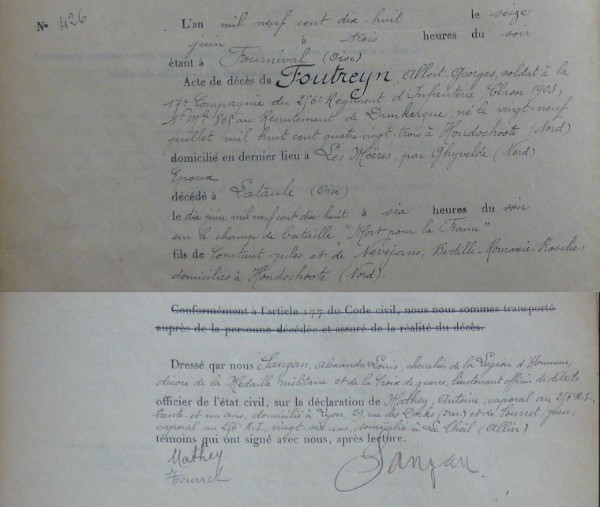 N° 426
L'an mil neuf cent dix huit le seize
juin à trois heures du soir
étant à Fournival (Oise)
Acte de décès de Foutreyn, Albert Georges, soldat à la
17e Compagnie du 256e Régiment d'Infanterie Classe 1903,
N° Mle au Recrutement de Dunkerque, né le vingt-neuf
juillet mil huit cent quatre vingt-trois à Hondschoote (Nord)
domicilié en dernier lieu à Les Moëres, par Ghyvelde (Nord)
Epoux
décédé à Lataule (Oise)
le dix juin mil neuf cent dix huit à six heures du soir
sur le champ de bataille "Mort pour la France"
fils de Constant Jules et de Romanie Rosalie,
domiciliés à Hondschoote (Nord).
Conformément à l'article 177 du Code civil, nous nous sommes transporté
auprès de la personne décédée et assuré de la réalité du décès.
Dressé qar nous Sangan, Alexandre Louis, chevalier de la Légion d'Honneur,
décoré de la Médaille militaire et de la Croix de guerre, lieutenant officier de détails
officier de l'état civil, sur la déclaration de Mathey, Antoine, caporal au 256 R.I.,
trente et un ans, domicilié à Lyon, 29 rue des Docks et de Tourret, Jean,
caporal au 256 R.I., vingt six ans, domicilié à Le Theil (Allier)
témoins qui ont signé avec nous, après lecture.
Mathey
Tourret
Sangan